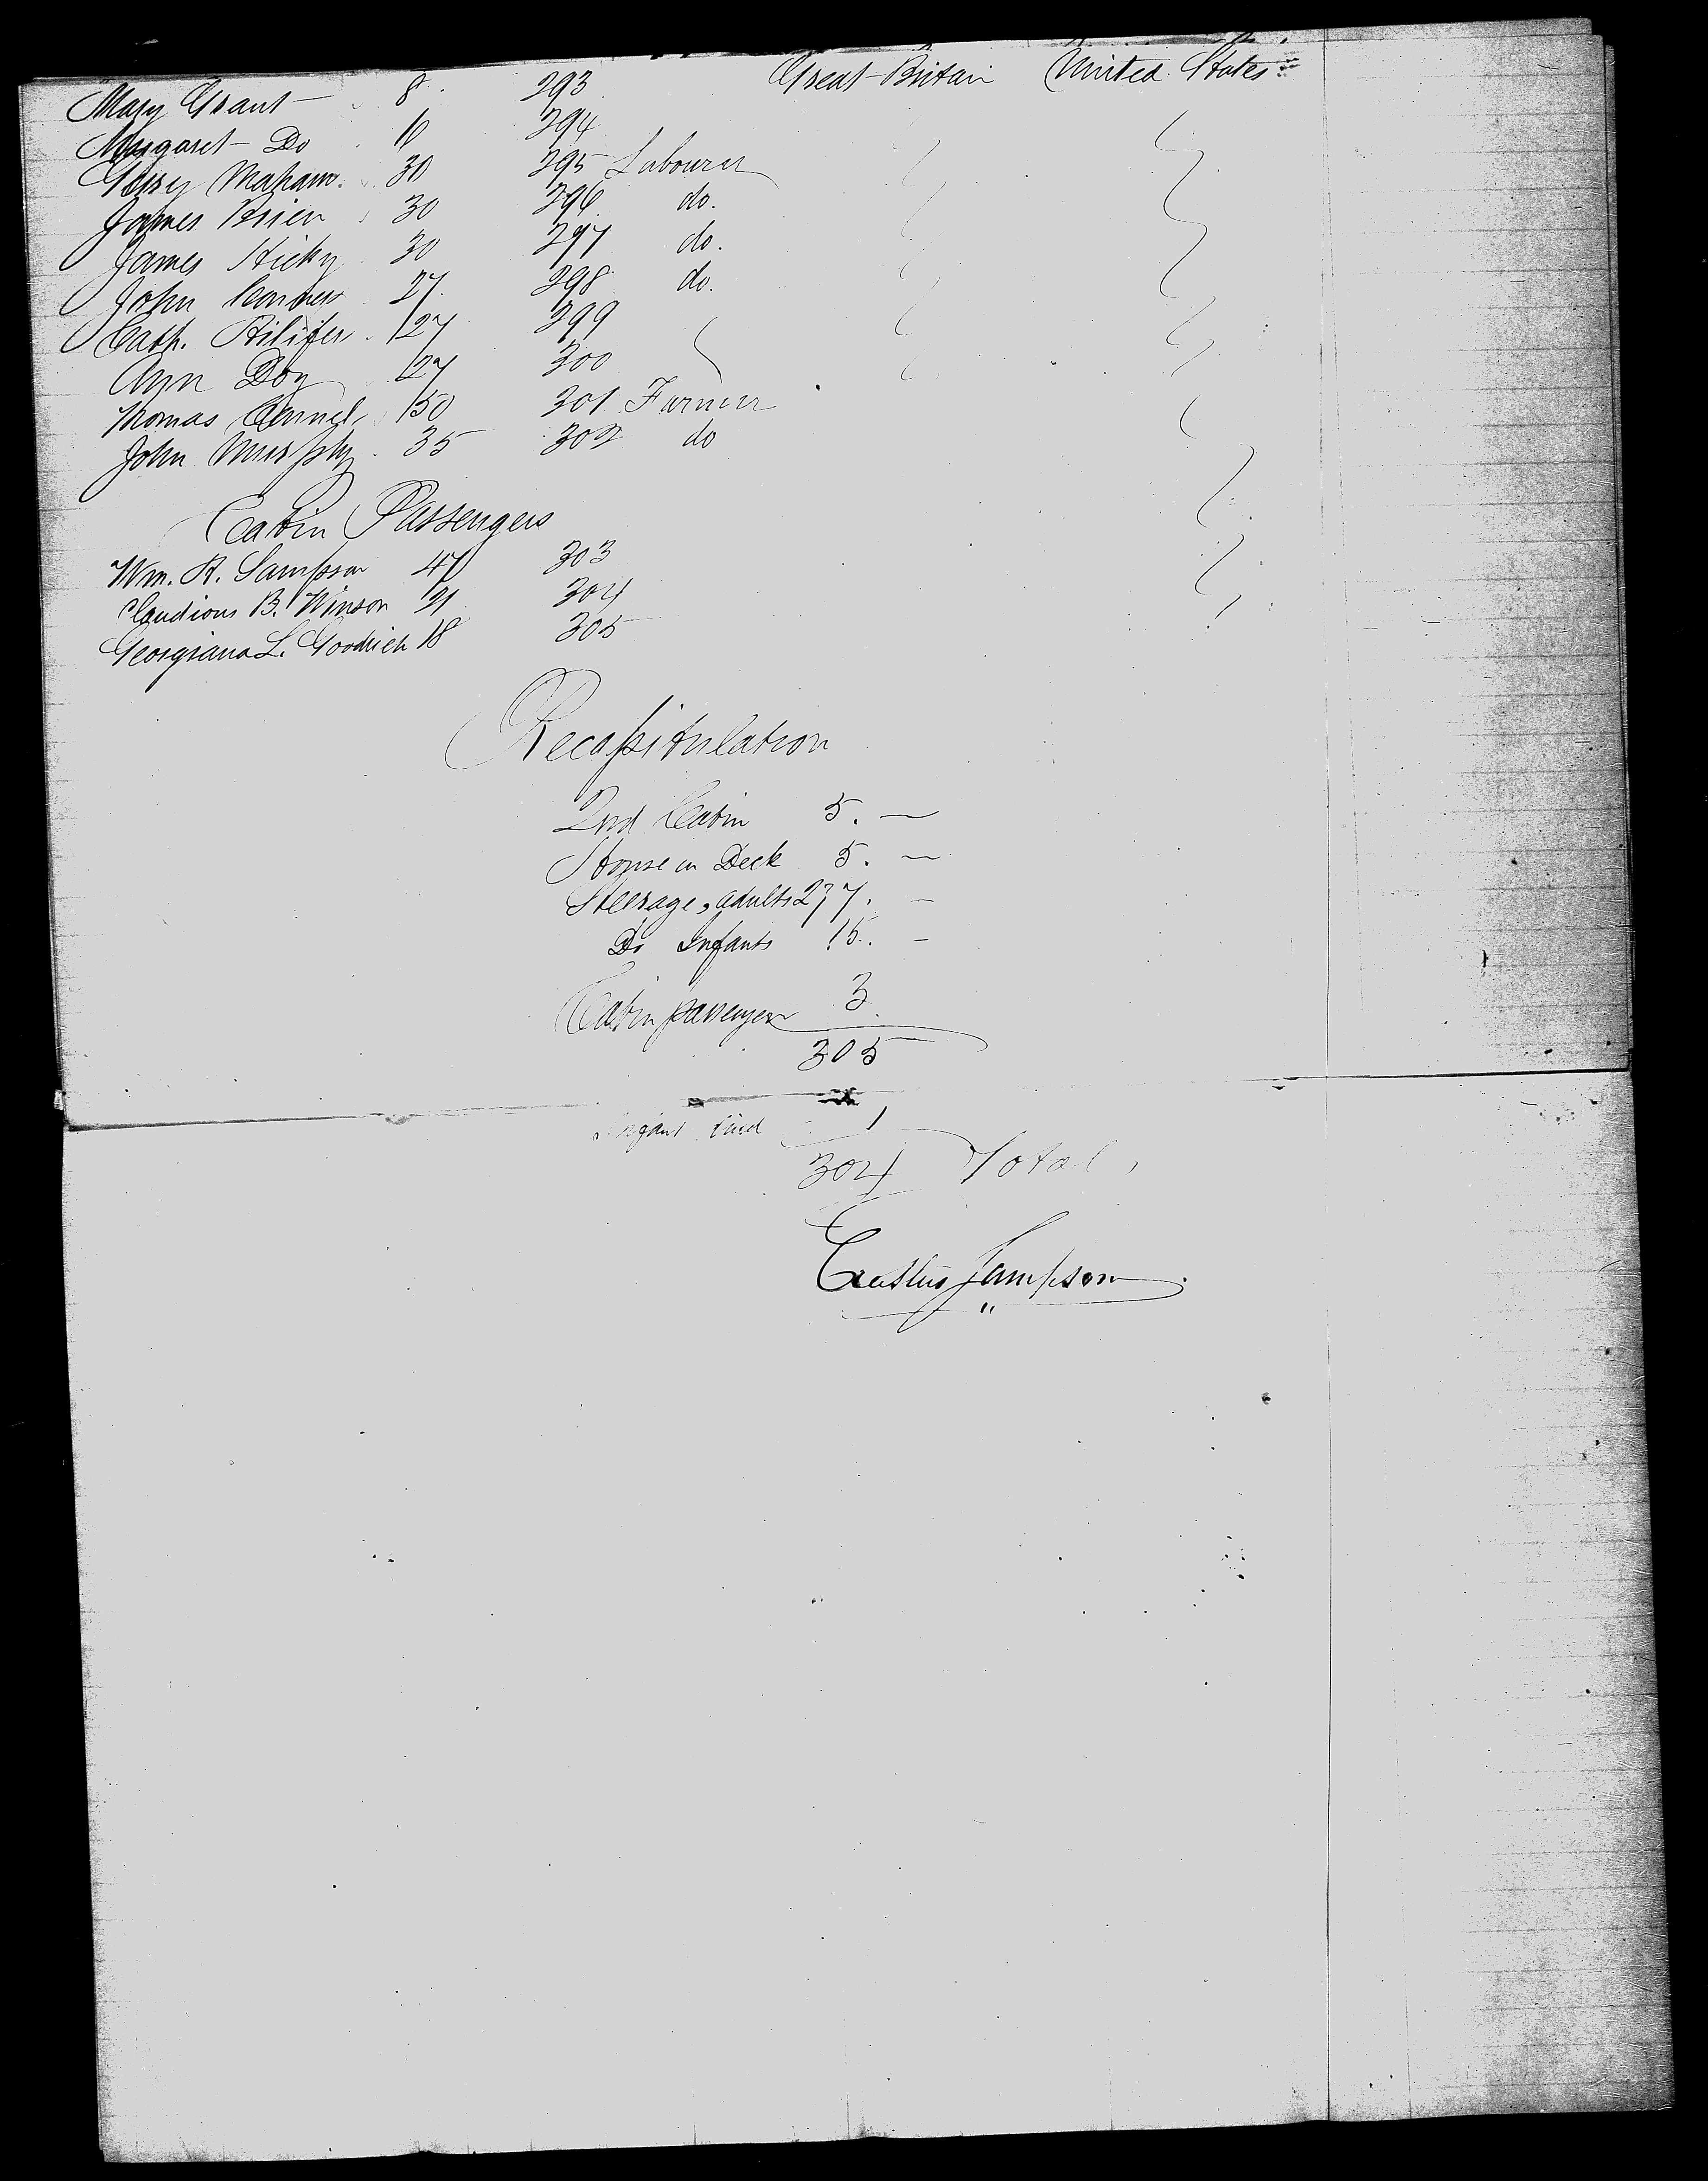 Mary Grant 8 293 Great Britain United States
Margaret Do 294
30 295 Labourer
James Brien 30 296 do.
James Hicky 30 297 do.
John Conners 27 298 do.
Cath. 27 299
Ann 27 300
Thomas 50 301 Farmer
John Murphy 35 302 do
Cabin Passengers
Wm. H. Sampson 47 303
Claudious B. Winson 21 304
Georgiana L. Goodrich 18 305
Recapitulation
2nd Cabin 5.
House on Deck 5.
Steerage, adults 277.
Do Infants 15.
Cabin passengers 3
305
Infant Died 1
304 Total
Erastus Sampson